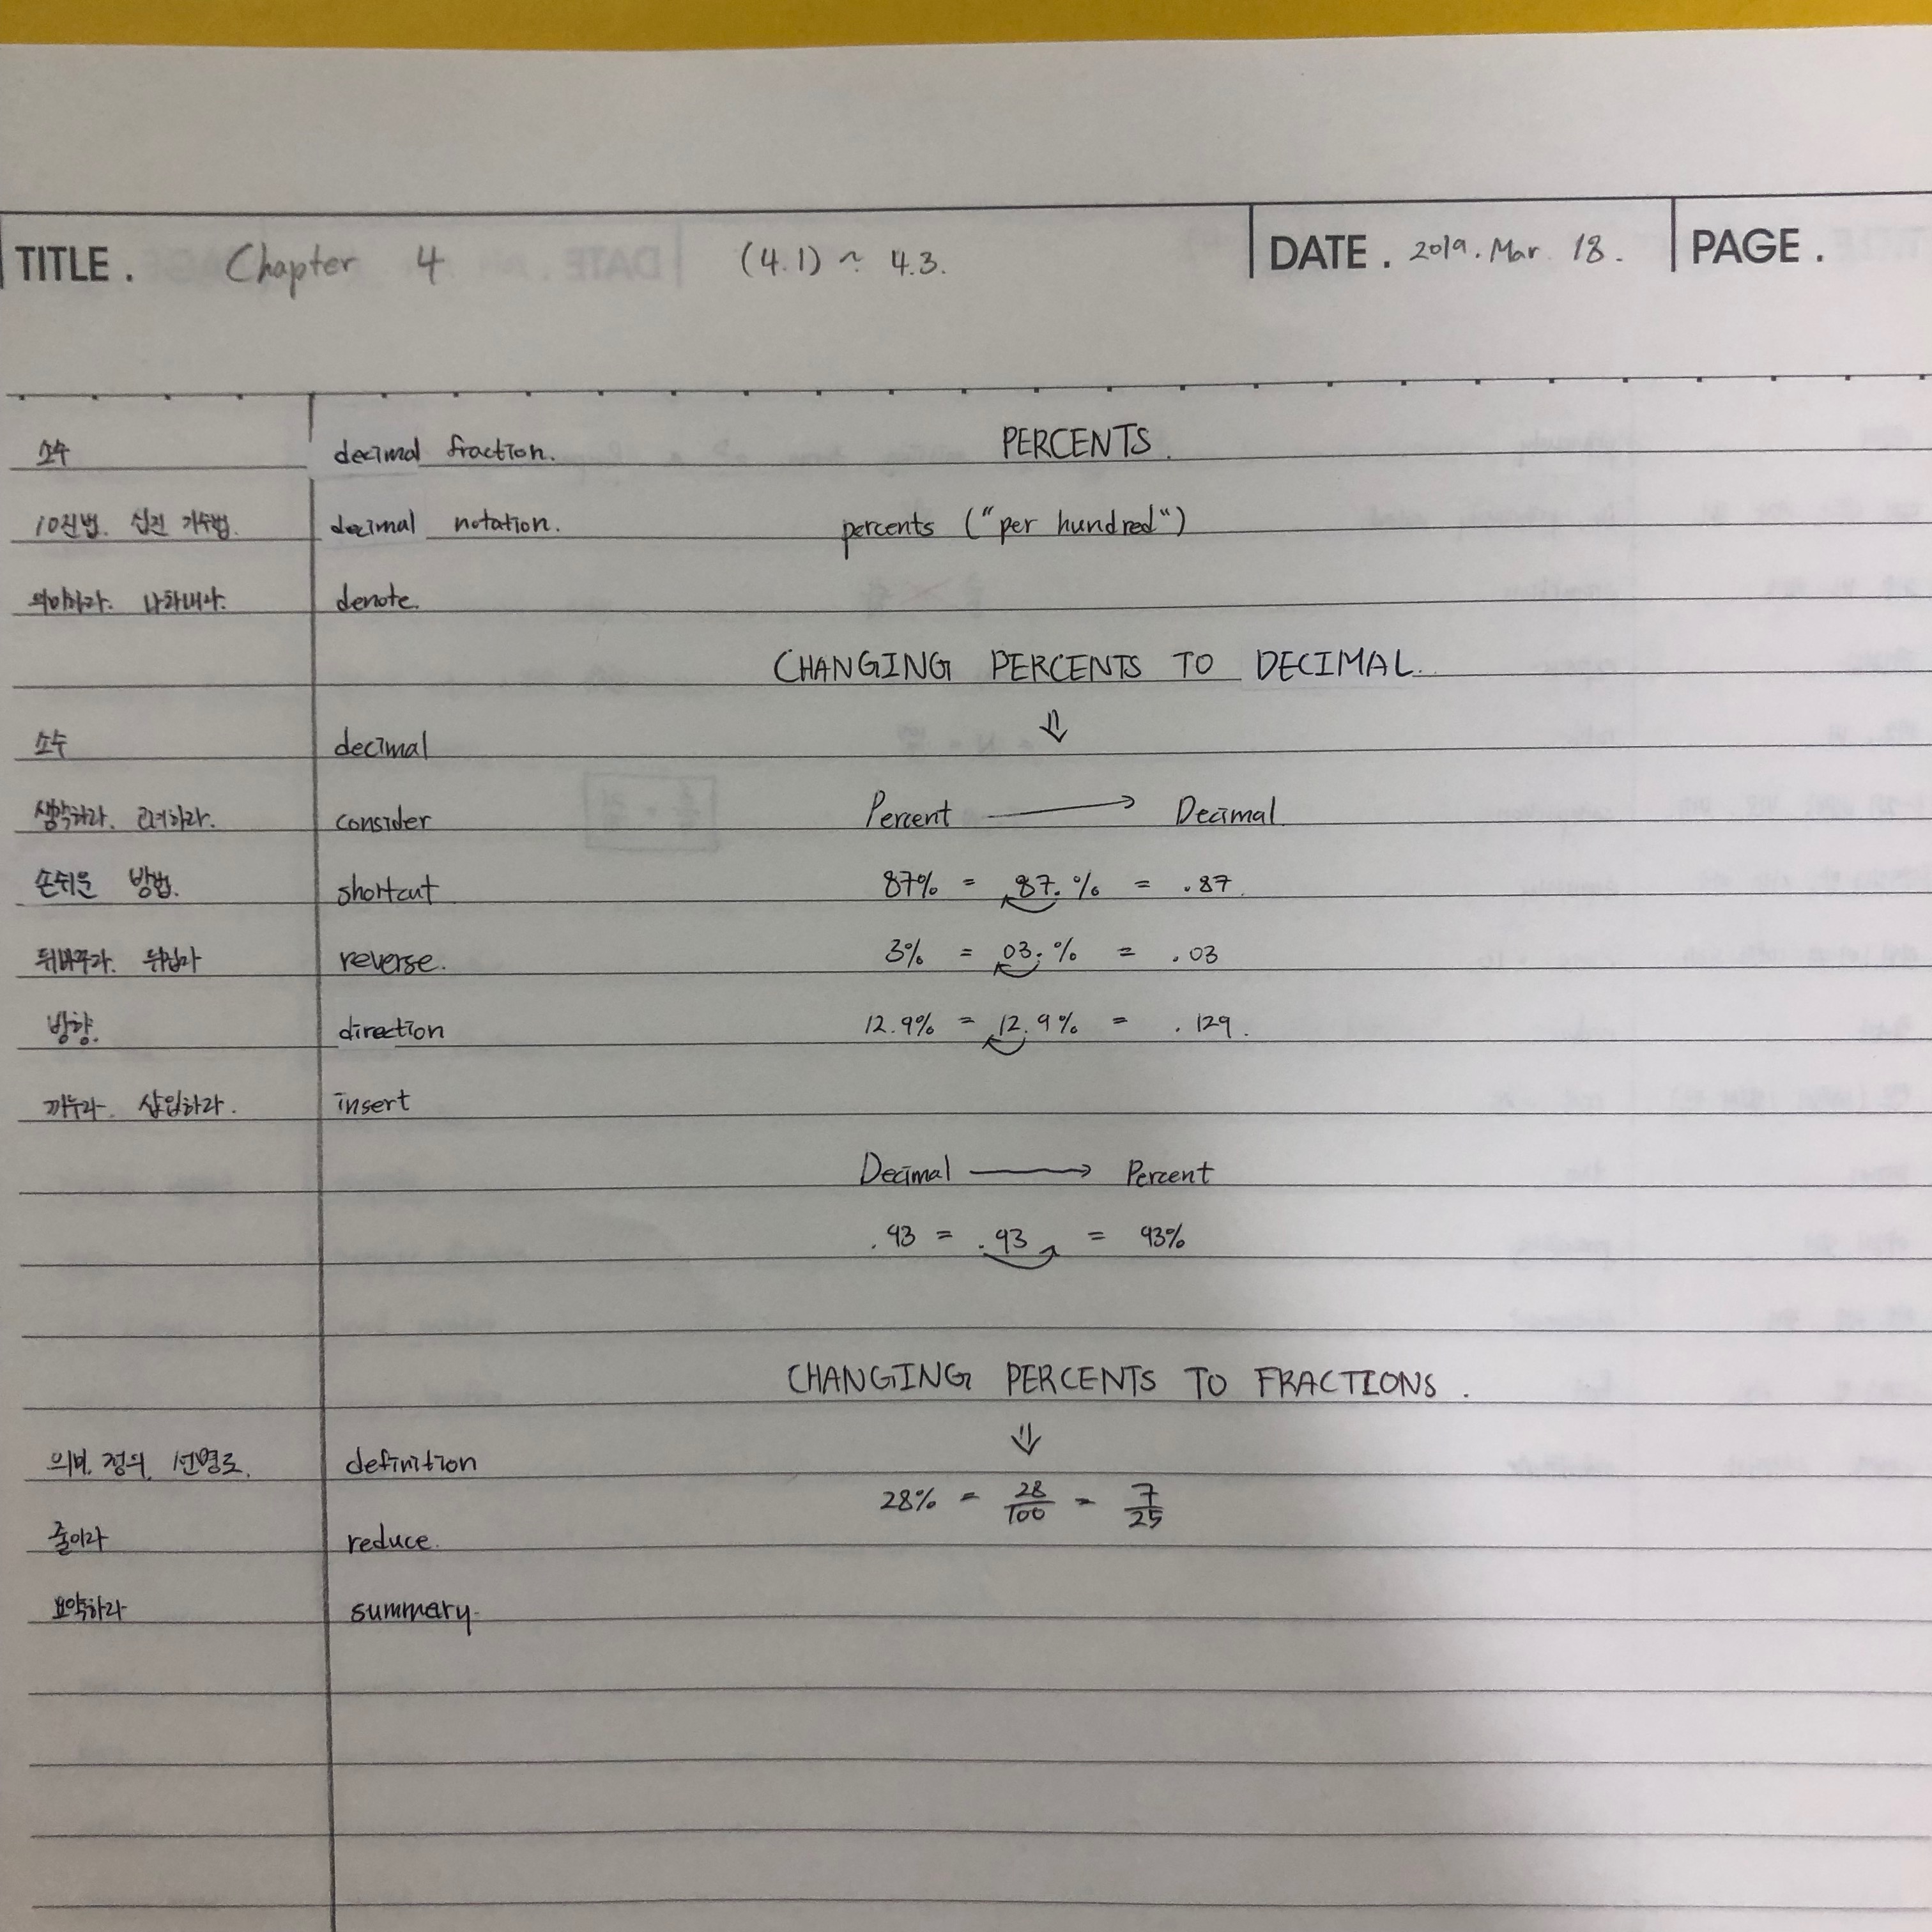 TITLE. Chapter 4 (4.1) ~ 4.3. DATE. 2019. Mar 18. PAGE.
소수 decimal fraction. PERCENTS.
10진법. 십진 기수법. decimal notation. percents ("per hundred")
의미하라. 나타내라. denote.
CHANGING PERCENTS TO DECIMAL.
⇓
소수 decimal
생각하라. 고려하라. consider Percent → Decimal
손쉬운 방법. shortcut 87% = 87.% = .87.
뒤바꾸라. 뒤집다 reverse. 3% = 03.% = .03
방향. direction 12.9% = 12.9% = .129.
끼우라. 삽입하라. insert
Decimal → Percent
.93 = .93 = 93%
CHANGING PERCENTS TO FRACTIONS.
⇓
정의. definition
28% = 28/100 = 7/25
줄이라 reduce.
요약하라 summary.